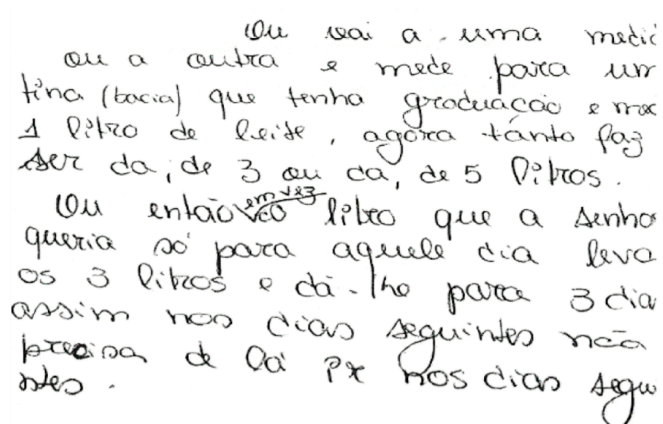 Ou vai a uma medid
ou a outra e mede para um
tina (bacia) que tenha graduação e med
1 litro de leite, agora tánto faz
ser da, de 3 ou da, de 5 litros.
Ou então em vez litro que a senho
queria só para aquele dia leva
os 3 litros e dá-lhe para 3 dia
assim nos dias seguintes não
precisa de lá ir nos dias segu
ntes.